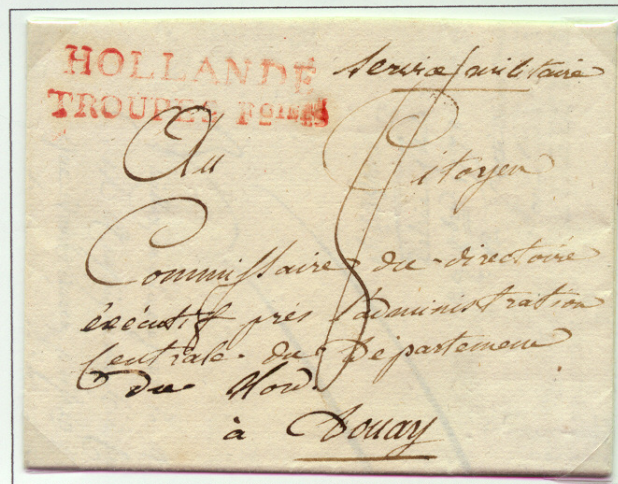 HOLLANDE
TROUPES F.çaises
Service militaire
Au Citoyen
Commissaire du directoire
éxécutif près l'administration
Centrale du Département
du Nord
à Douay